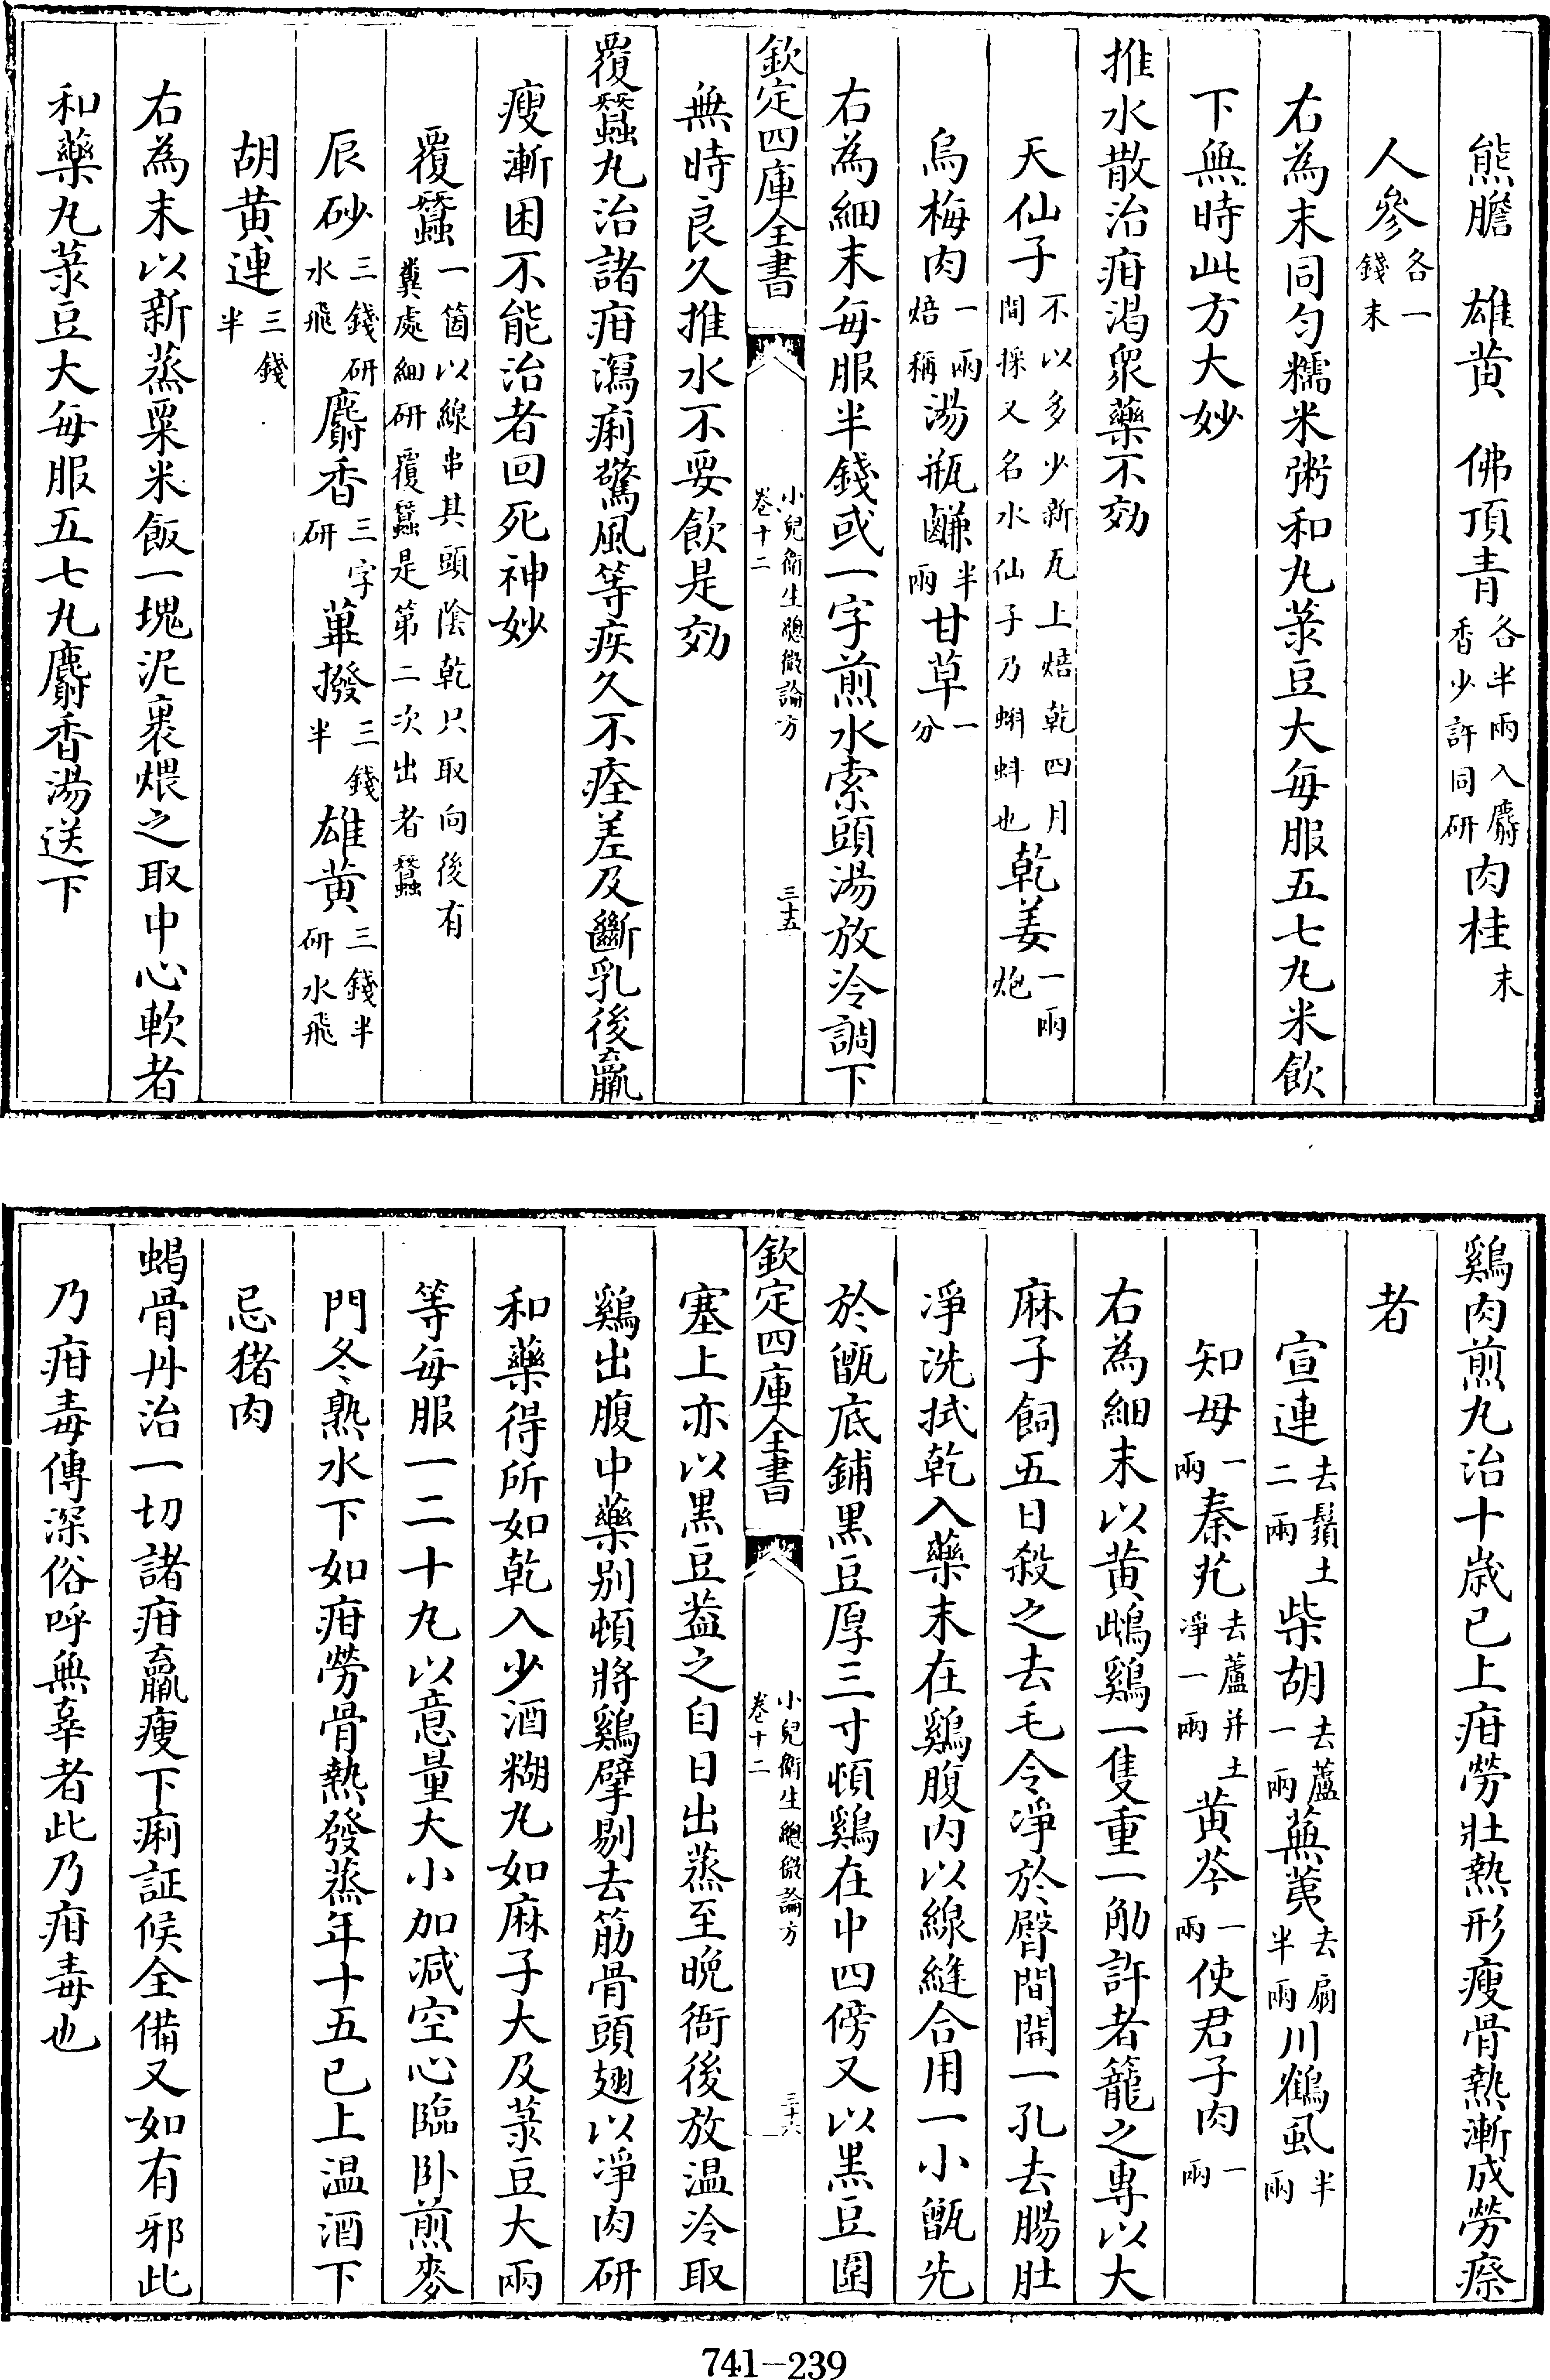 熊膽　雄黄　佛頂青各半兩入麝香少許同研肉桂末
人參各一錢末
右為末同匀糯米粥和丸菉豆大每服五七丸米飲
下無時此方大妙
推水散治疳渴衆藥不効
天仙子不以多少新瓦上焙乾四月間採又名水仙子乃蝌蚪也乾姜一兩炮
烏梅肉一兩焙稱湯瓶鹻半兩甘草一分
右為細末每服半錢或一字煎水索頭湯放冷調下
欽定四庫全書　小兒衛生總微論方卷十二　三十五
無時良久推水不妥飲是効
覆蠶丸治諸疳瀉痢驚風等疾久不痊差及斷乳後羸
瘦漸困不能治者回死神妙
覆蠶一箇以線串其頭陰乾只取向後有糞處細研覆蠶是第二次出者蠶
辰砂三錢研水飛麝香三字研蓽撥三錢半雄黄三錢半研水飛
胡黄連三錢半
右為末以新蒸粟米飯一塊泥裹煨之取中心軟者
和藥丸菉豆大每服五七丸麝香湯送下
鷄肉煎丸治十歲已上疳勞壯熱形瘦骨熱漸成勞瘵
者
宣連去鬚土二兩柴胡去蘆一兩蕪荑去扇半兩川鶴虱半兩
知母一兩秦艽去蘆并土淨一兩黄芩一兩使君子肉一兩
右為細末以黄雌鷄一隻重一觔許者籠之專以大
麻子飼五日殺之去毛令淨於臀間開一孔去腸肚
淨洗拭乾入藥末在鷄腹内以線縫合用一小甑先
於甑底鋪黒豆厚三寸頓鷄在中四傍又以黒豆圍
欽定四庫全書　小兒衛生總微論方卷十二　三十六
塞上亦以黒豆葢之自日出蒸至晚衙後放温冷取
鷄出腹中藥别頓將鷄擘剔去筋骨頭翅以淨肉研
和藥得所如乾入少酒糊丸如麻子大及菉豆大兩
等每服一二十丸以意量大小加减空心臨卧煎麥
門冬熟水下如疳勞骨熱發蒸年十五已上温酒下
忌猪肉
蝎骨丹治一切諸疳羸瘦下痢証候全備又如有邪此
乃疳毒傳深俗呼無辜者此乃疳毒也
741—239